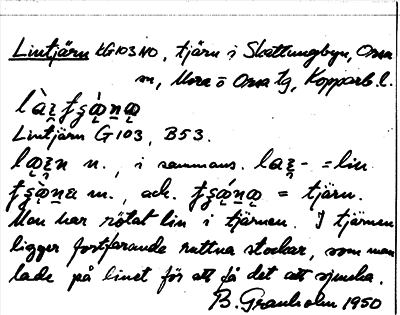 Lintjärn KG103 NO, tjärn i Skattungbyn, Orsa
sn, Mora o Orsa tg, Kopparb. l.
Lintjärn G103, B53.
n., i sammans. = lin
m., ack. = tjärn.
Man har rötat lin i tjärnen. I tjärnen
ligger fortfarande ruttna stockar, som man
lade på linet för att få det att sjunka.
B. Granholm 1950